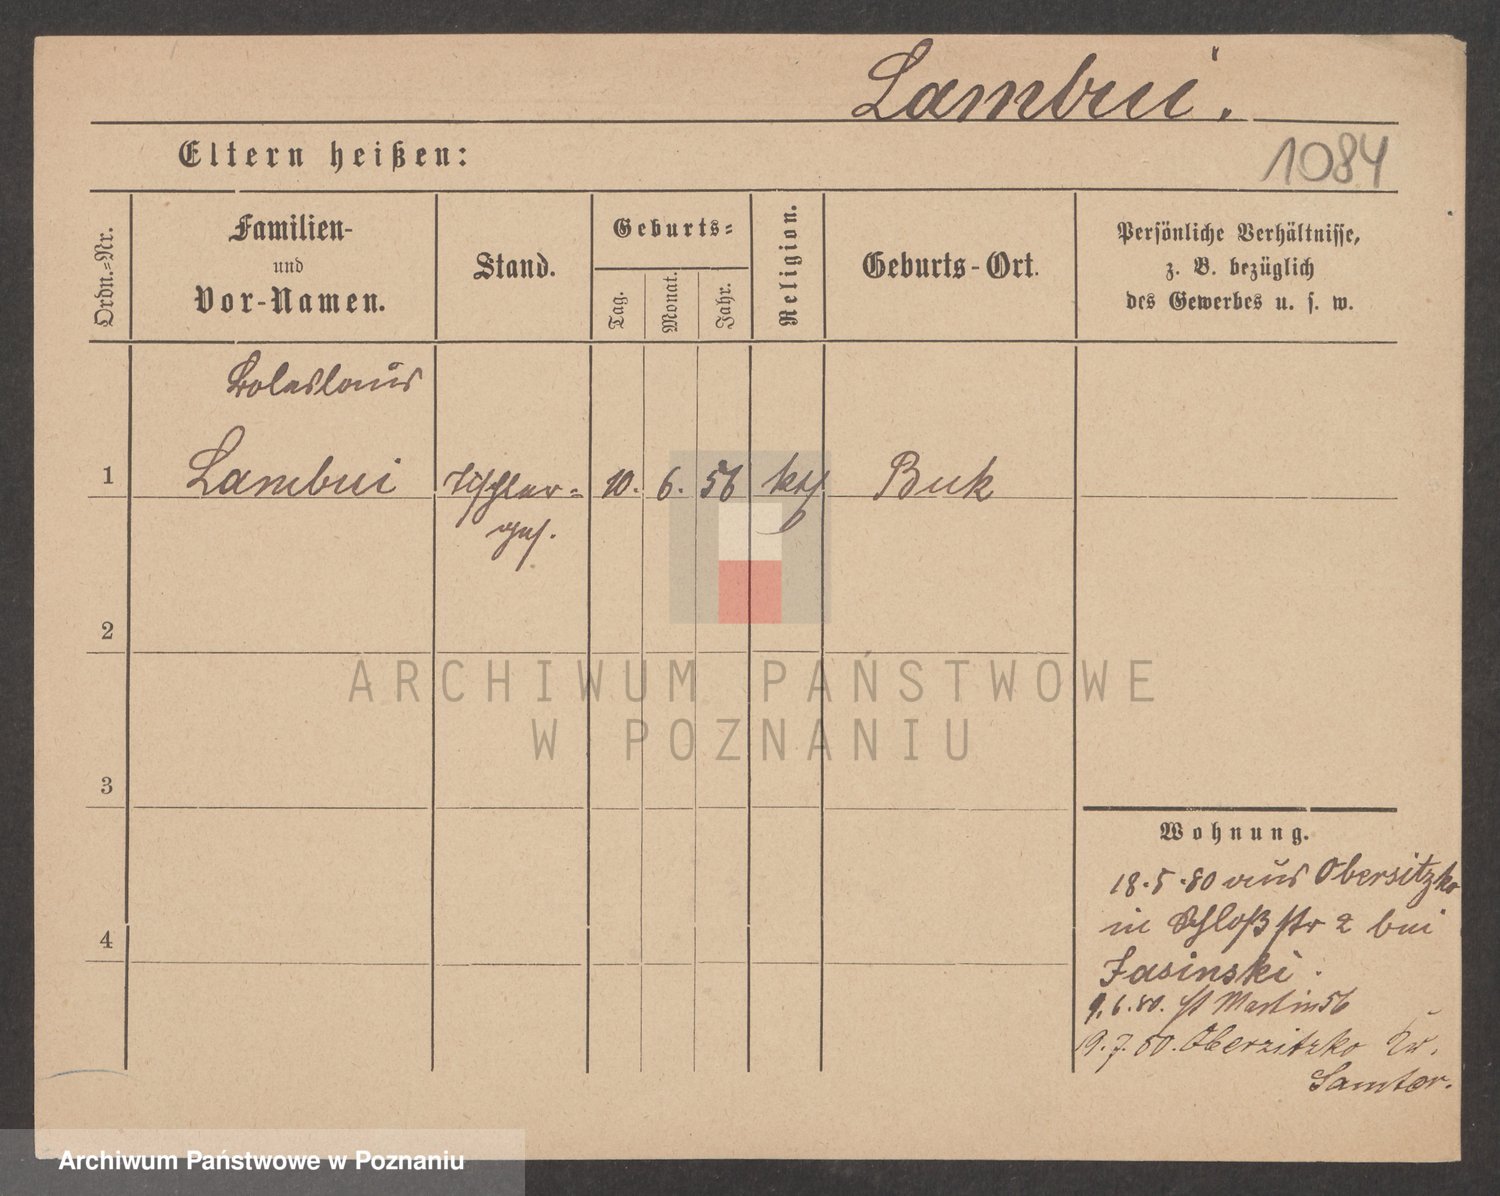 Lambui.
Eltern heißen:
1084
Ordn.=Nr.
Familien-
und
Vor-Namen.
Stand.
Geburts=
Tag.
Monat.
Jahr.
Religion.
Geburts-Ort.
Persönliche Verhältnisse,
z. B. bezüglich
des Gewerbes u. s. w.
Boleslaus
1 Lambui Tischler= 10. 6. 56 kth Buk
ges.
2
ARCHIWUM PAŃSTWOWE
W POZNANIU
3
Wohnung.
18.5.80 aus Obersitzko
in Schloßstr 2 bei
4
Jasinski.
9.6.80. St Martin 56
19.7.80. Oberzitzko Kr.
Samter.
Archiwum Państwowe w Poznaniu